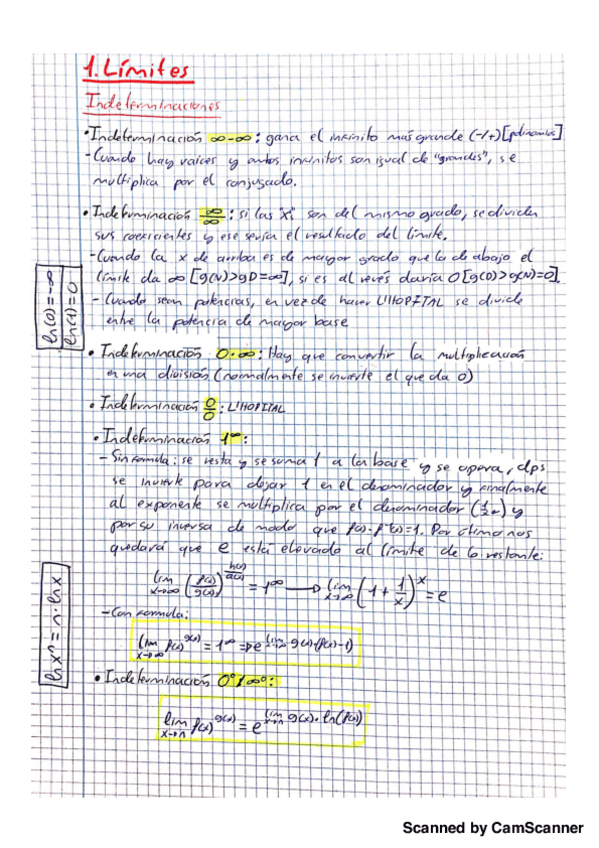 1. Límites
Indeterminaciones
• Indeterminación ∞-∞: gana el infinito más grande (-/+) [polinomios]
- Cuando hay raíces y ambos infinitos son igual de "grandes", se
multiplica por el conjugado.
• Indeterminación ∞/∞: si las "x" son del mismo grado, se dividen
sus coeficientes y ese sería el resultado del límite.
- Cuando la x de arriba es de mayor grado que la de abajo el
límite da ∞ [g(N)>gD=∞], si es al revés daría 0 [g(D)>g(N)=0].
- Cuando sean potencias, en vez de hacer L'HOPITAL se divide
entre la potencia de mayor base
ln(0)=-∞
ln(1)=0
• Indeterminación 0·∞: Hay que convertir la multiplicación
en una división (normalmente se invierte el que da 0)
• Indeterminación 0/0: L'HOPITAL
• Indeterminación 1^∞:
- Sin formula: se resta y se suma 1 a la base y se opera, dps
se invierte para dejar 1 en el denominador y finalmente
al exponente se multiplica por el denominador
por su inversa de modo que f(x)·f⁻¹(x)=1. Por último nos
quedará que e está elevado al límite de lo restante:
lim x→∞ (f(x)/g(x))^(h(x)/d(x)) = 1^∞ → lim x→∞ (1 + 1/x)^x = e
ln xⁿ = n·ln x
- Con formula:
lim x→∞ f(x)^g(x) = 1^∞ ⇒ e^(lim x→∞ g(x)·(f(x)-1))
• Indeterminación 0⁰/∞⁰:
lim x→n f(x)^g(x) = e^(lim x→n g(x)·ln(f(x)))
Scanned by CamScanner